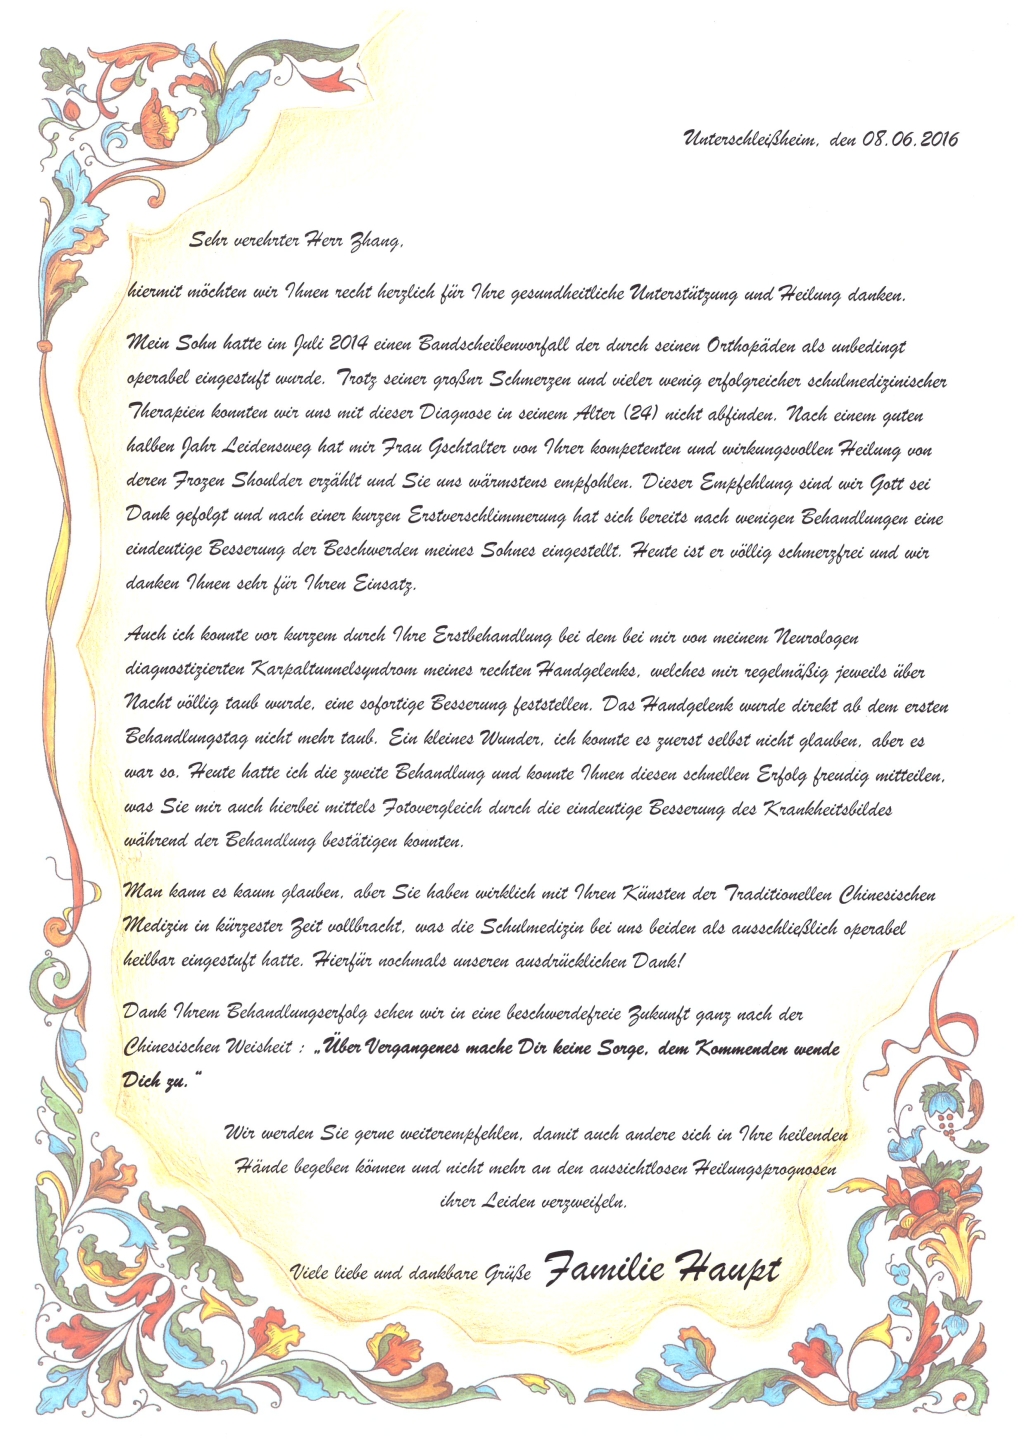 Unterschleißheim, den 08.06.2016
Sehr verehrter Herr Zhang,
hiermit möchten wir Ihnen recht herzlich für Ihre gesundheitliche Unterstützung und Heilung danken.
Mein Sohn hatte im Juli 2014 einen Bandscheibenvorfall der durch seinen Orthopäden als unbedingt
operabel eingestuft wurde. Trotz seiner großnr Schmerzen und vieler wenig erfolgreicher schulmedizinischer
Therapien konnten wir uns mit dieser Diagnose in seinem Alter (24) nicht abfinden. Nach einem guten
halben Jahr Leidensweg hat mir Frau Gschtalter von Ihrer kompetenten und wirkungsvollen Heilung von
deren Frozen Shoulder erzählt und Sie uns wärmstens empfohlen. Dieser Empfehlung sind wir Gott sei
Dank gefolgt und nach einer kurzen Erstverschlimmerung hat sich bereits nach wenigen Behandlungen eine
eindeutige Besserung der Beschwerden meines Sohnes eingestellt. Heute ist er völlig schmerzfrei und wir
danken Ihnen sehr für Ihren Einsatz.
Auch ich konnte vor kurzem durch Ihre Erstbehandlung bei dem bei mir von meinem Neurologen
diagnostizierten Karpaltunnelsyndrom meines rechten Handgelenks, welches mir regelmäßig jeweils über
Nacht völlig taub wurde, eine sofortige Besserung feststellen. Das Handgelenk wurde direkt ab dem ersten
Behandlungstag nicht mehr taub. Ein kleines Wunder, ich konnte es zuerst selbst nicht glauben, aber es
war so. Heute hatte ich die zweite Behandlung und konnte Ihnen diesen schnellen Erfolg freudig mitteilen,
was Sie mir auch hierbei mittels Fotovergleich durch die eindeutige Besserung des Krankheitsbildes
während der Behandlung bestätigen konnten.
Man kann es kaum glauben, aber Sie haben wirklich mit Ihren Künsten der Traditionellen Chinesischen
Medizin in kürzester Zeit vollbracht, was die Schulmedizin bei uns beiden als ausschließlich operabel
heilbar eingestuft hatte. Hierfür nochmals unseren ausdrücklichen Dank!
Dank Ihrem Behandlungserfolg sehen wir in eine beschwerdefreie Zukunft ganz nach der
Chinesischen Weisheit : „Über Vergangenes mache Dir keine Sorge, dem Kommenden wende
Dich zu.“
Wir werden Sie gerne weiterempfehlen, damit auch andere sich in Ihre heilenden
Hände begeben können und nicht mehr an den aussichtlosen Heilungsprognosen
ihrer Leiden verzweifeln.
Viele liebe und dankbare Grüße Familie Haupt